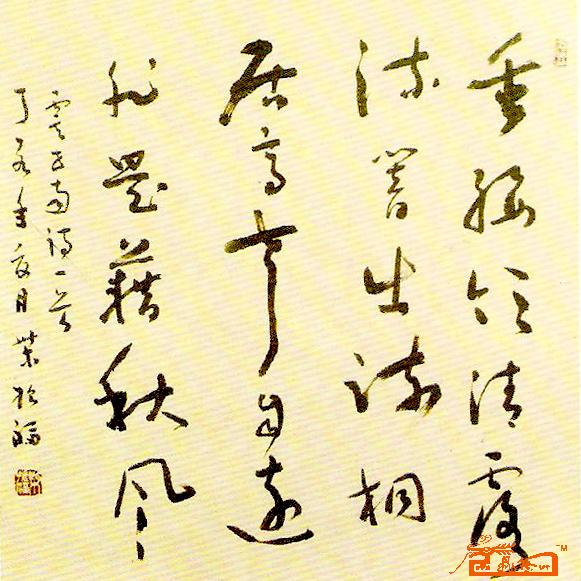 垂緌飲清露
流響出疏桐
居高聲自遠
非是藉秋風
虞世南詩一首
丁亥年夏月